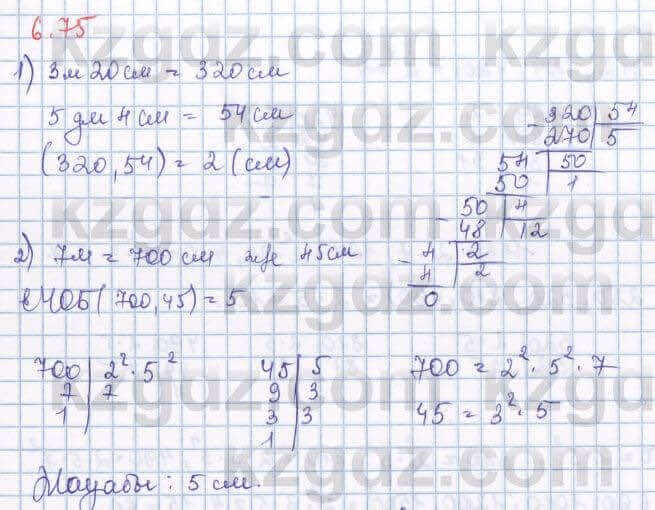 6.75
1) 3м 20см = 320см
5 дм 4 см = 54 см
(320, 54) = 2 (см)
320 | 54
270 | 5
54 | 50
50 | 1
50 | 4
48 | 12
4 | 2
4 | 2
0
2) 7м = 700 см және 45см
ЕҮОБ( 700, 45) = 5
700 | 2² · 5²
7 | 7
1
45 | 5
9 | 3
3 | 3
1
700 = 2² · 5² · 7
45 = 3² · 5
Жауабы : 5 см.
kzgdz.com